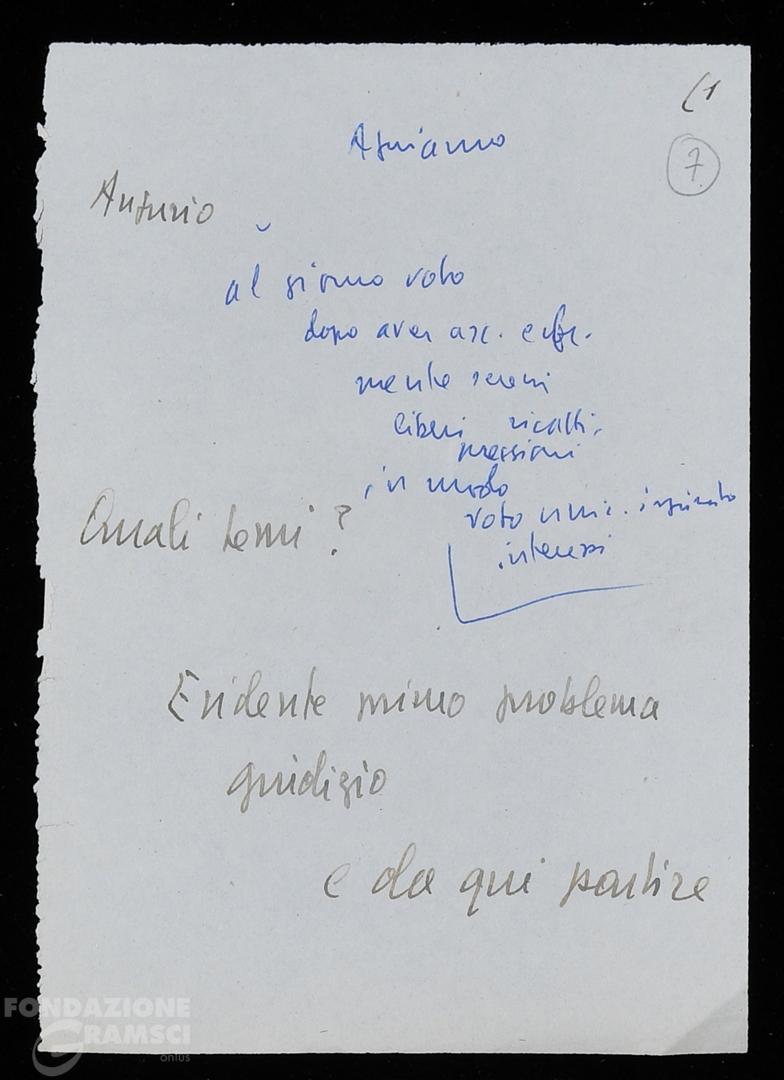 (1
7
Auguriamo
Augurio
al giorno voto
dopo aver asc.
mente sereni
liberi ricatti,
pressioni
in modo
voto ispirato
interessi
Quali temi?
Evidente primo problema
giudizio
e da qui partire
FONDAZIONE
GRAMSCI
onlus